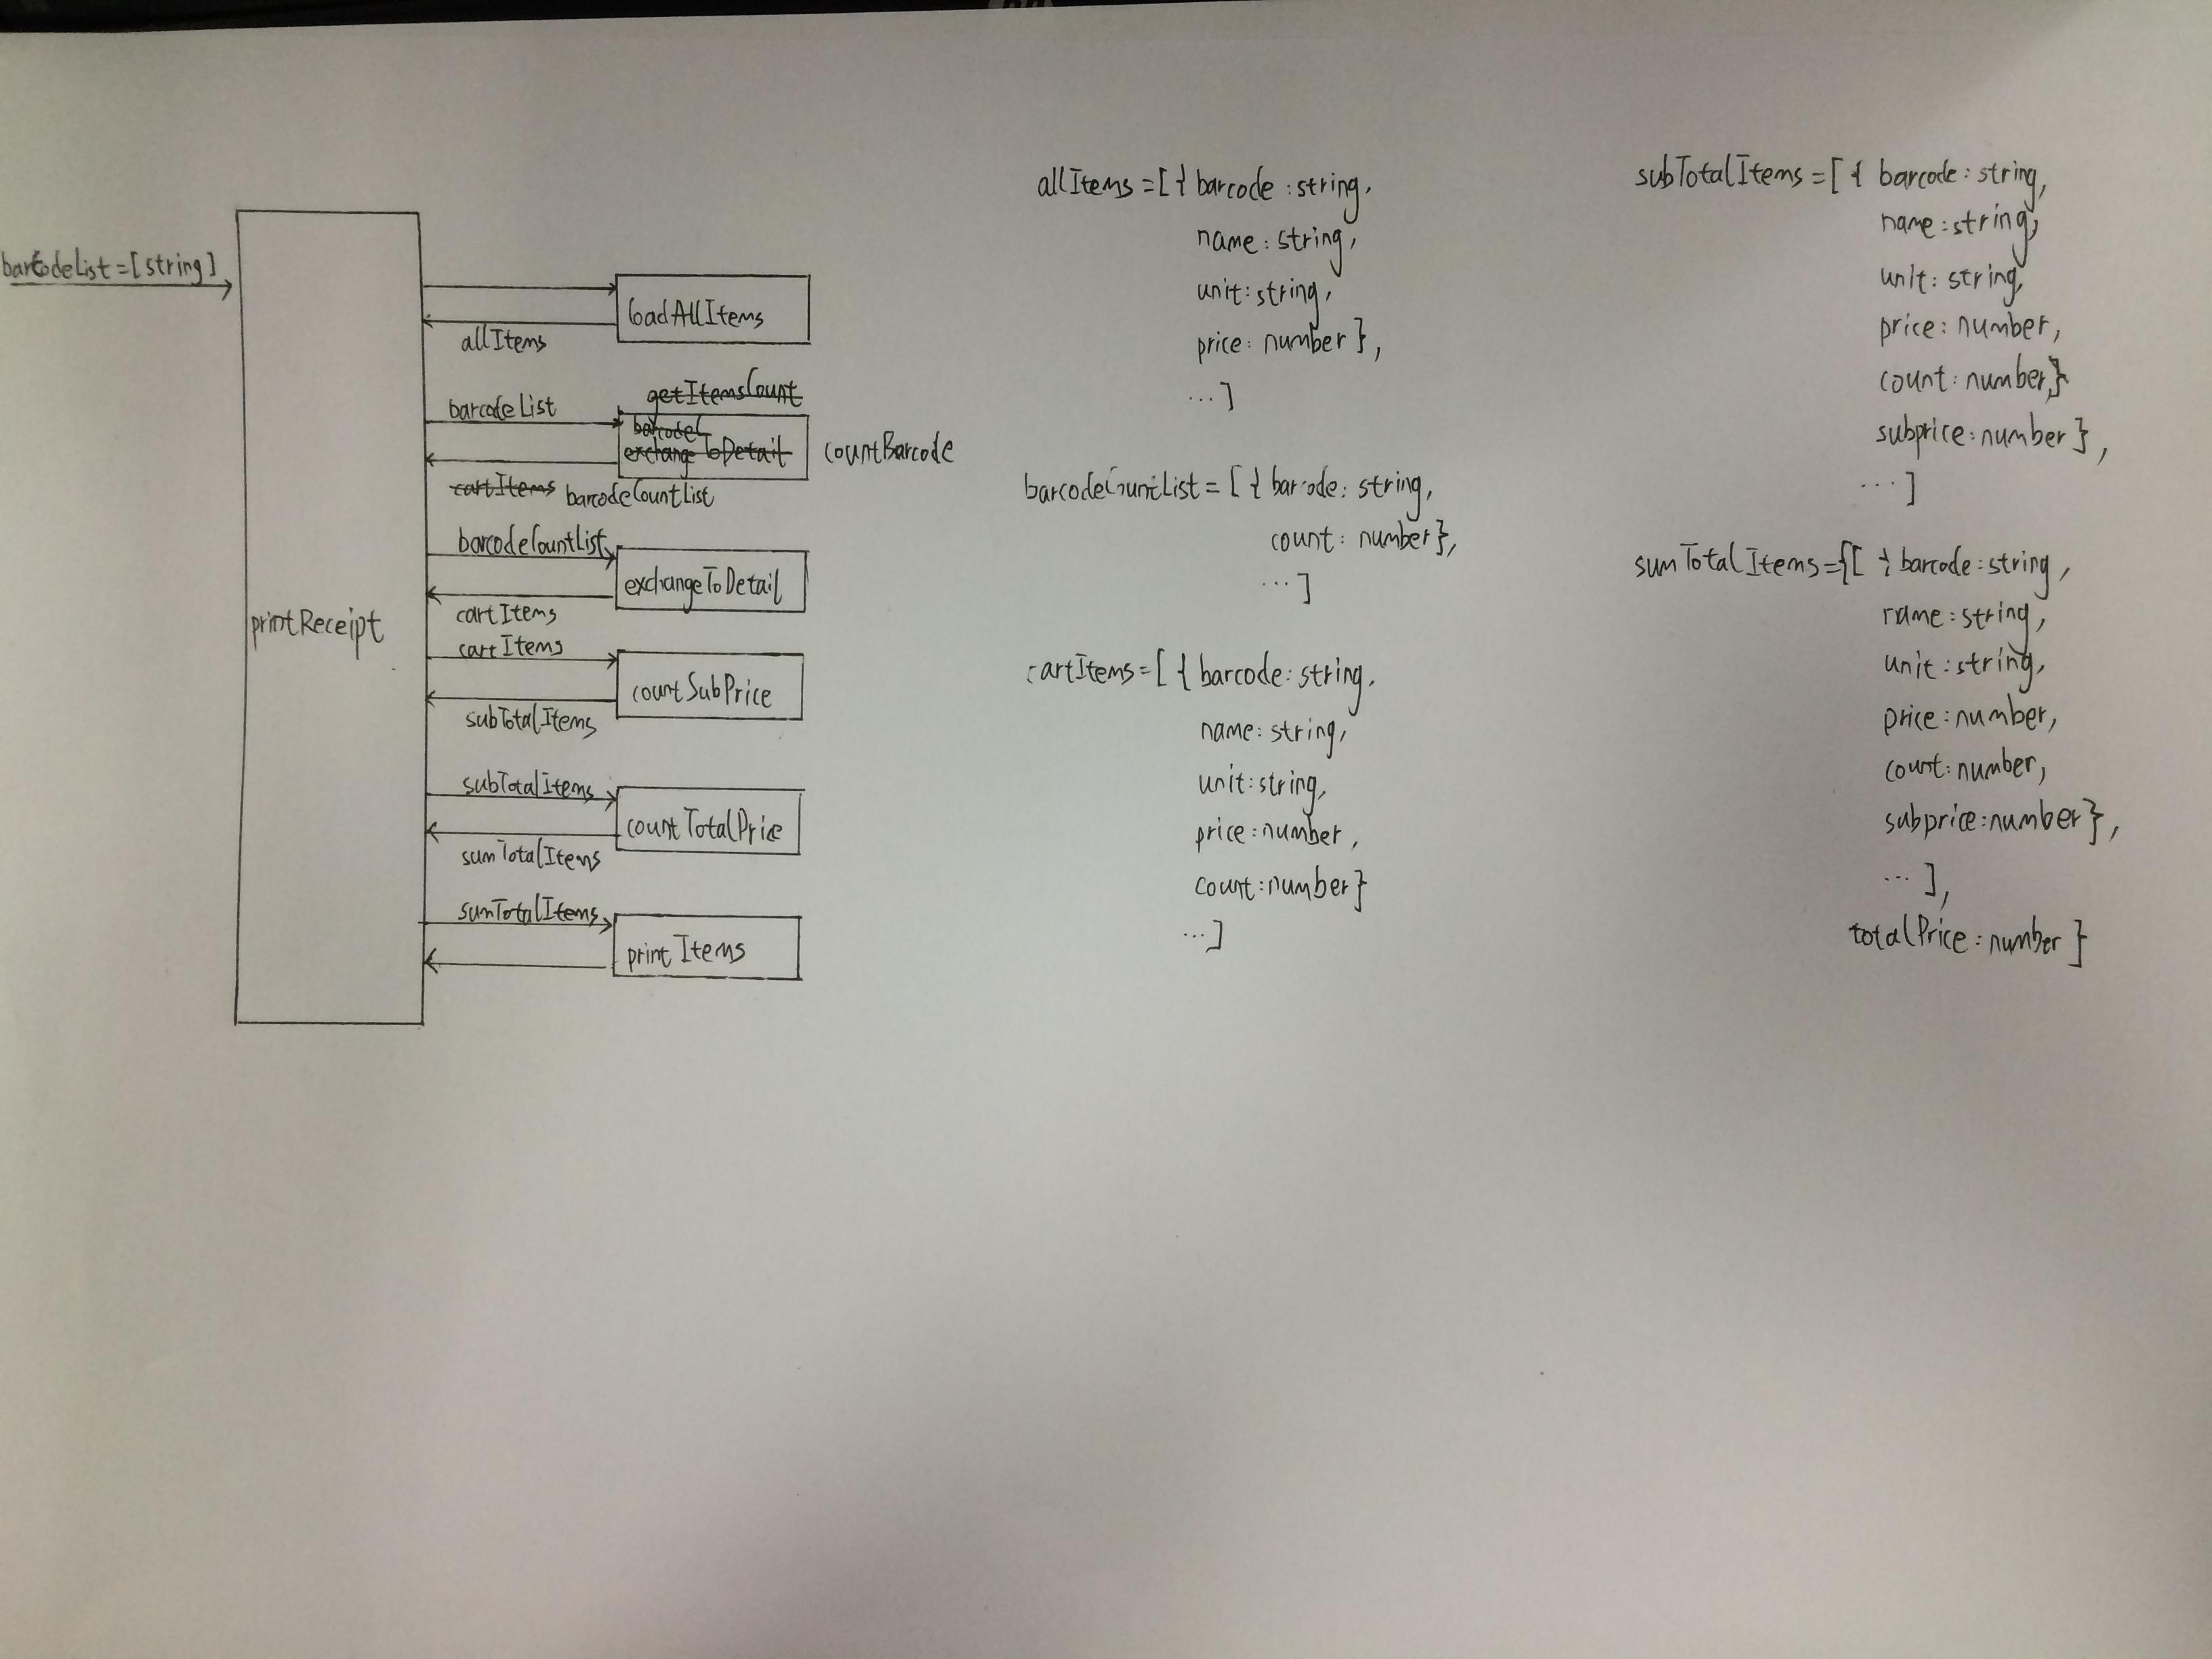 barcodeList=[string]
printReceipt
loadAllItems
allItems
getItemsCount
barcodeList
barcodeC
exchangeToDetail
countBarcode
cartItems barcodeCountList
barcodeCountList
exchangeToDetail
cartItems
cartItems
countSubPrice
subTotalItems
subTotalItems
countTotalPrice
sumTotalItems
sumTotalItems
printItems
allItems=[{barcode:string,
name:string,
unit:string,
price:number},
...]
barcodeCountList=[{barcode:string,
count:number},
...]
cartItems=[{barcode:string,
name:string,
unit:string,
price:number,
count:number}
...]
subTotalItems=[{barcode:string,
name:string,
unit:string,
price:number,
count:number,}
subprice:number},
...]
sumTotalItems={[{barcode:string,
name:string,
unit:string,
price:number,
count:number,
subprice:number},
...],
totalPrice:number}